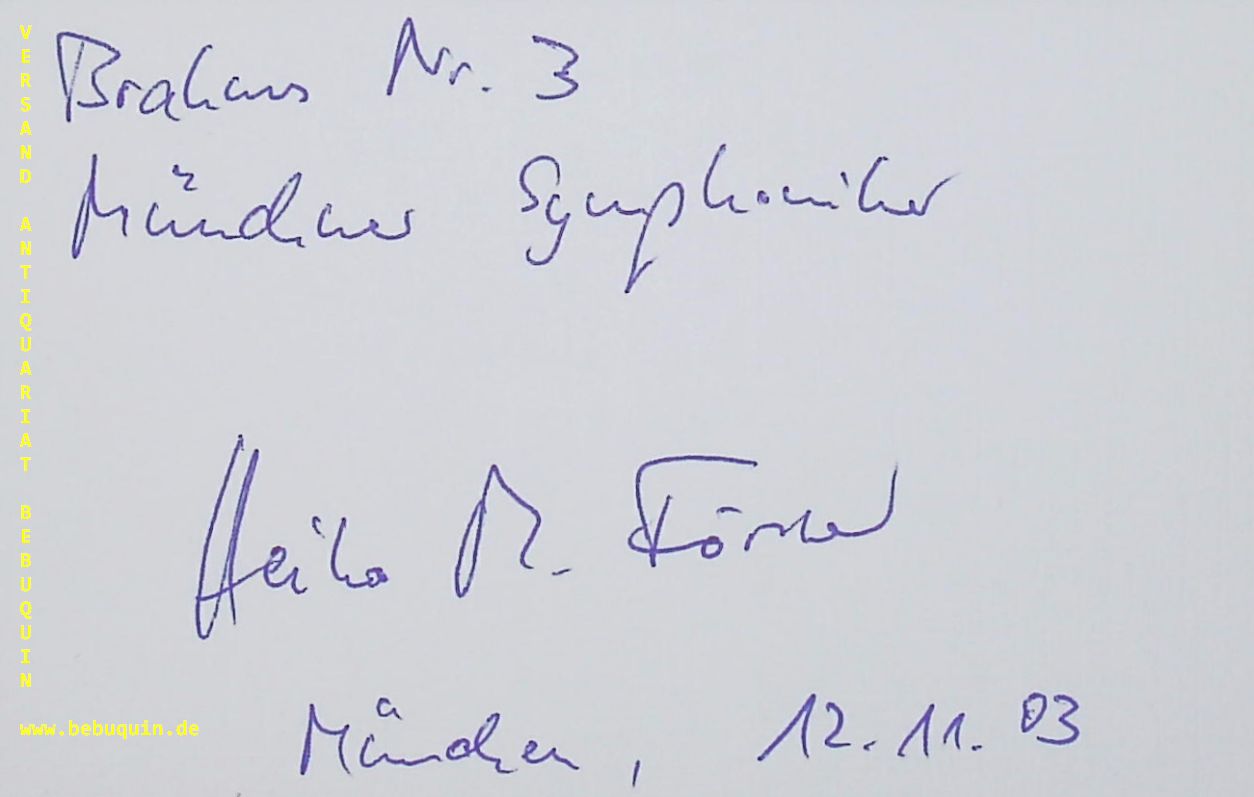 Brahms Nr. 3
Münchner Symphoniker
Heiko M. Förster
München, 12.11.03
VERSAND ANTIQUARIAT BEBUQUIN
www.bebuquin.de